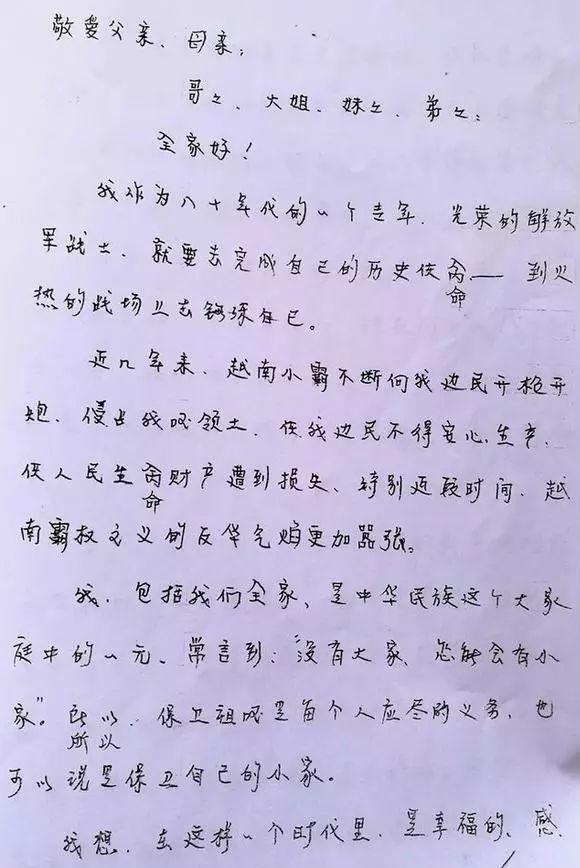 敬爱父亲、母亲：
哥々、大姐、妹々、弟々：
全家好！
我作为八十年代的一个青年、光荣的解放
军战士、就要去完成自己的历史使命——到火
命
热的战场上去锻练自已。
近几年来、越南小霸不断向我边民开枪开
炮、侵占我国领土、使我边民不得安心生产、
使人民生命财产遭到损失、特别近段时间、越
命
南霸权主义的反华气焰更加嚣张。
我、包括我们全家、是中华民族这个大家
庭中的一元、常言到：“没有大家、怎能会有小
家”。所以、保卫祖国是每个人应尽的义务、也
所以
可以说是保卫自己的小家。
我想、在这样一个时代里、是幸福的、感